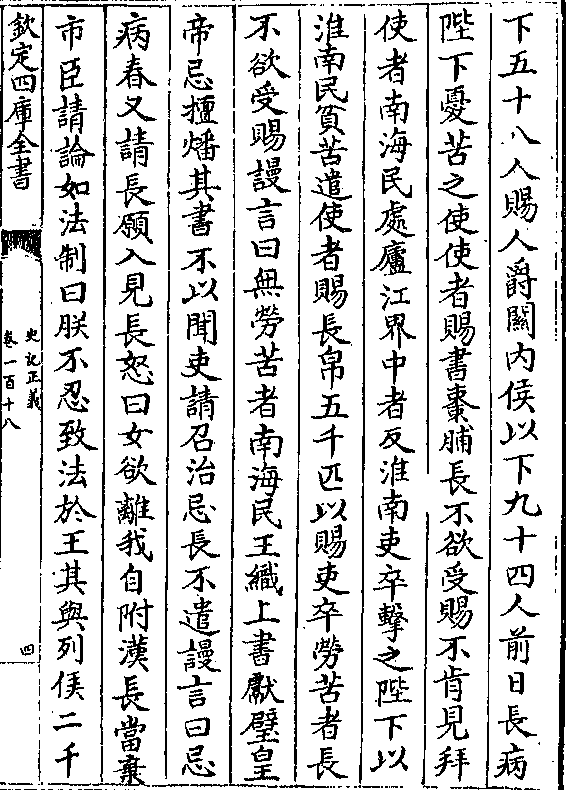 下五十八人賜人爵關内侯以下九十四人前日長病
陛下憂苦之使使者賜書棗脯長不欲受賜不肯見拜
使者南海民處廬江界中者反淮南吏卒擊之陛下以
淮南民貧苦遣使者賜長帛五千匹以賜吏卒勞苦者長
不欲受賜謾言曰無勞苦者南海民王織上書獻璧皇
帝忌擅燔其書不以聞吏請召治忌長不遣謾言曰忌
病春又請長願入見長怒曰女欲離我自附漢長當棄
市臣請論如法制曰朕不忍致法於王其與列侯二千
欽定四庫全書
史記正義
卷一百十八
四